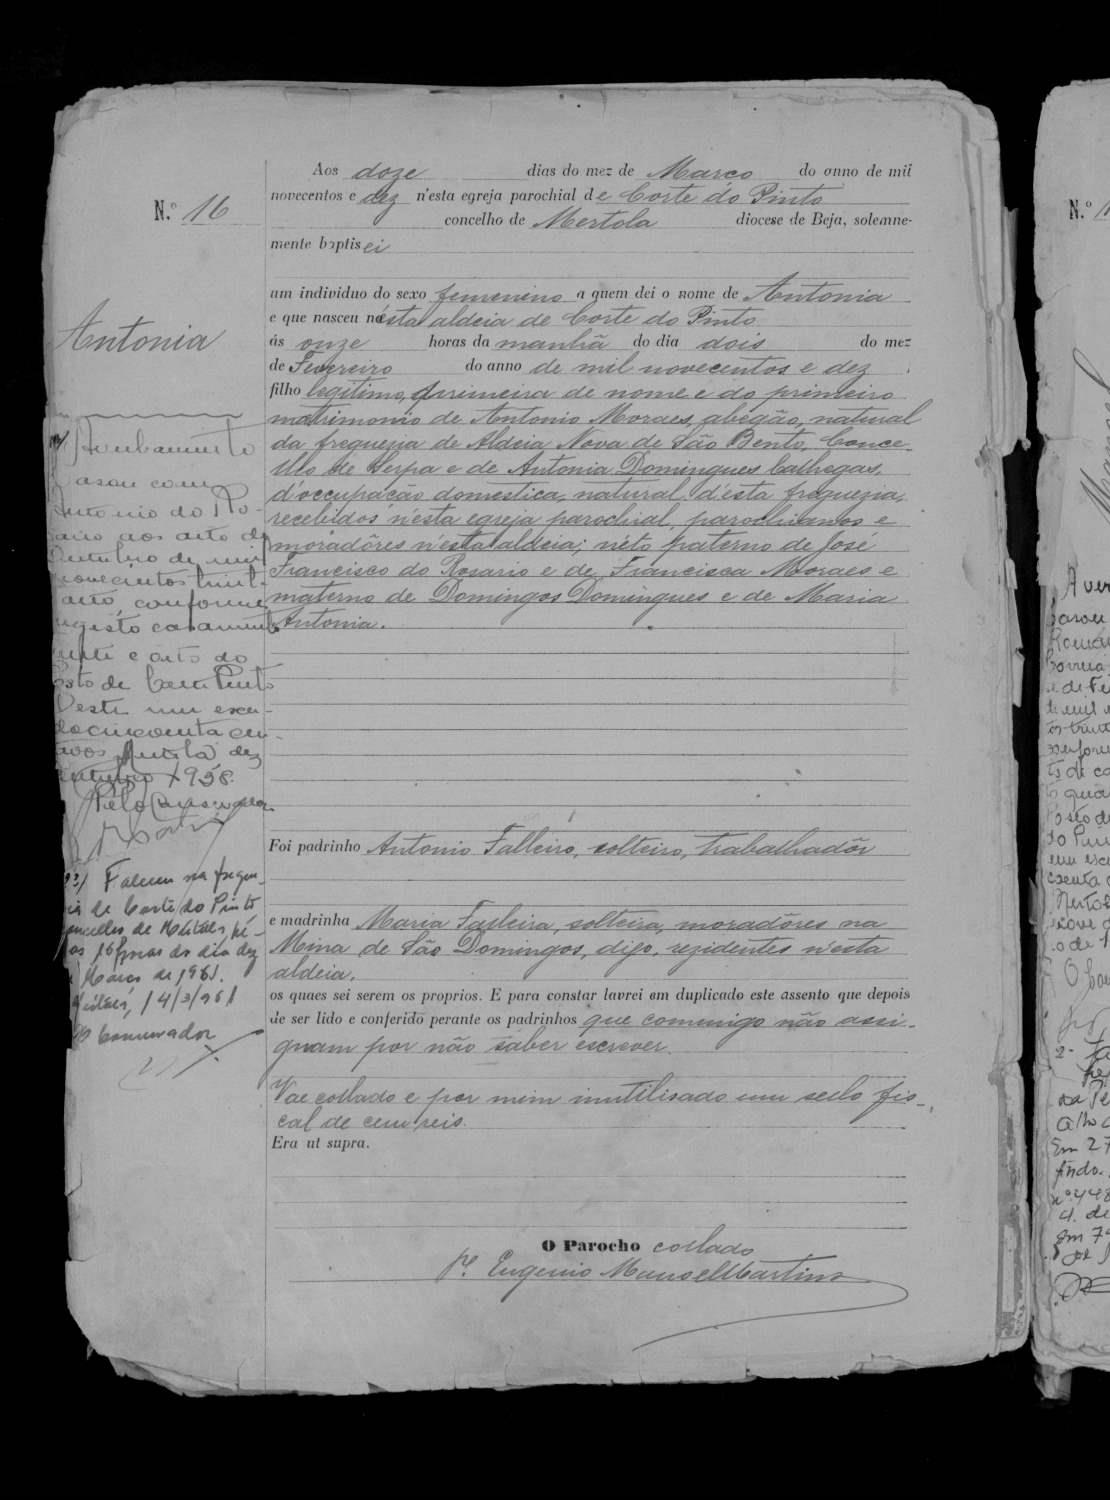 N.º 16
Antonia
Aos doze dias do mez de Março do anno de mil
novecentos e dez n'esta egreja parochial de Corte do Pinto
concelho de Mertola diocese de Beja, solemne-
mente baptisei
um individuo do sexo femenino a quem dei o nome de Antonia
e que nasceu n'ésta aldeia de Corte do Pinto
ás onze horas da manhã do dia dois do mez
de Fevereiro do anno de mil novecentos e dez
filho legitimo, primeira de nome e do primeiro
matrimonio de Antonio Moraes, abegão, natural
da freguezia de Aldeia Nova de São Bento, Conce-
lho de Serpa e de Antonia Domingues Calhegas,
d'occupacão domestica, natural d'ésta freguezia,
recebidos n'ésta egreja parochial, parochianos e
moradôres n'ésta aldeia; néto paterno de José
Francisco do Rosario e de Francisca Moraes e
materno de Domingos Domingues e de Maria
Antonia.
Foi padrinho Antonio Falleiro, solteiro, trabalhadôr
e madrinha Maria Farleira, solteira, moradôres na
Mina de São Domingos, digo, rezidentes n'ésta
aldeia,
os quaes sei serem os proprios. E para constar lavrei em duplicado este assento que depois
de ser lido e conferido perante os padrinhos que comungo não assi-
gnam por não saber escrever.
Vae collado e por mim inutilisado um sello fis-
cal de cem reis.
Era ut supra.
O Parocho collado
P.e Eugenio Manoel Martins
Averbamento
Casou com
Antonio do Ro-
sario aos oito de
Outubro de mil
novecentos trint
oito, conforme
registo casamento
vinte e oito do
Posto de Corte Pinto
Deste um escu-
do cincoenta cen-
tavos Mertola, dez
Outubro 1938.
Pelo Conservador
2º) Faleceu na fregue-
sia de Corte do Pinto
concelho de Mértola, pe-
las 16 horas do dia dez
Março de 1961.
Mértola, 14/3/961
O Conservador
N.º 1
Casou